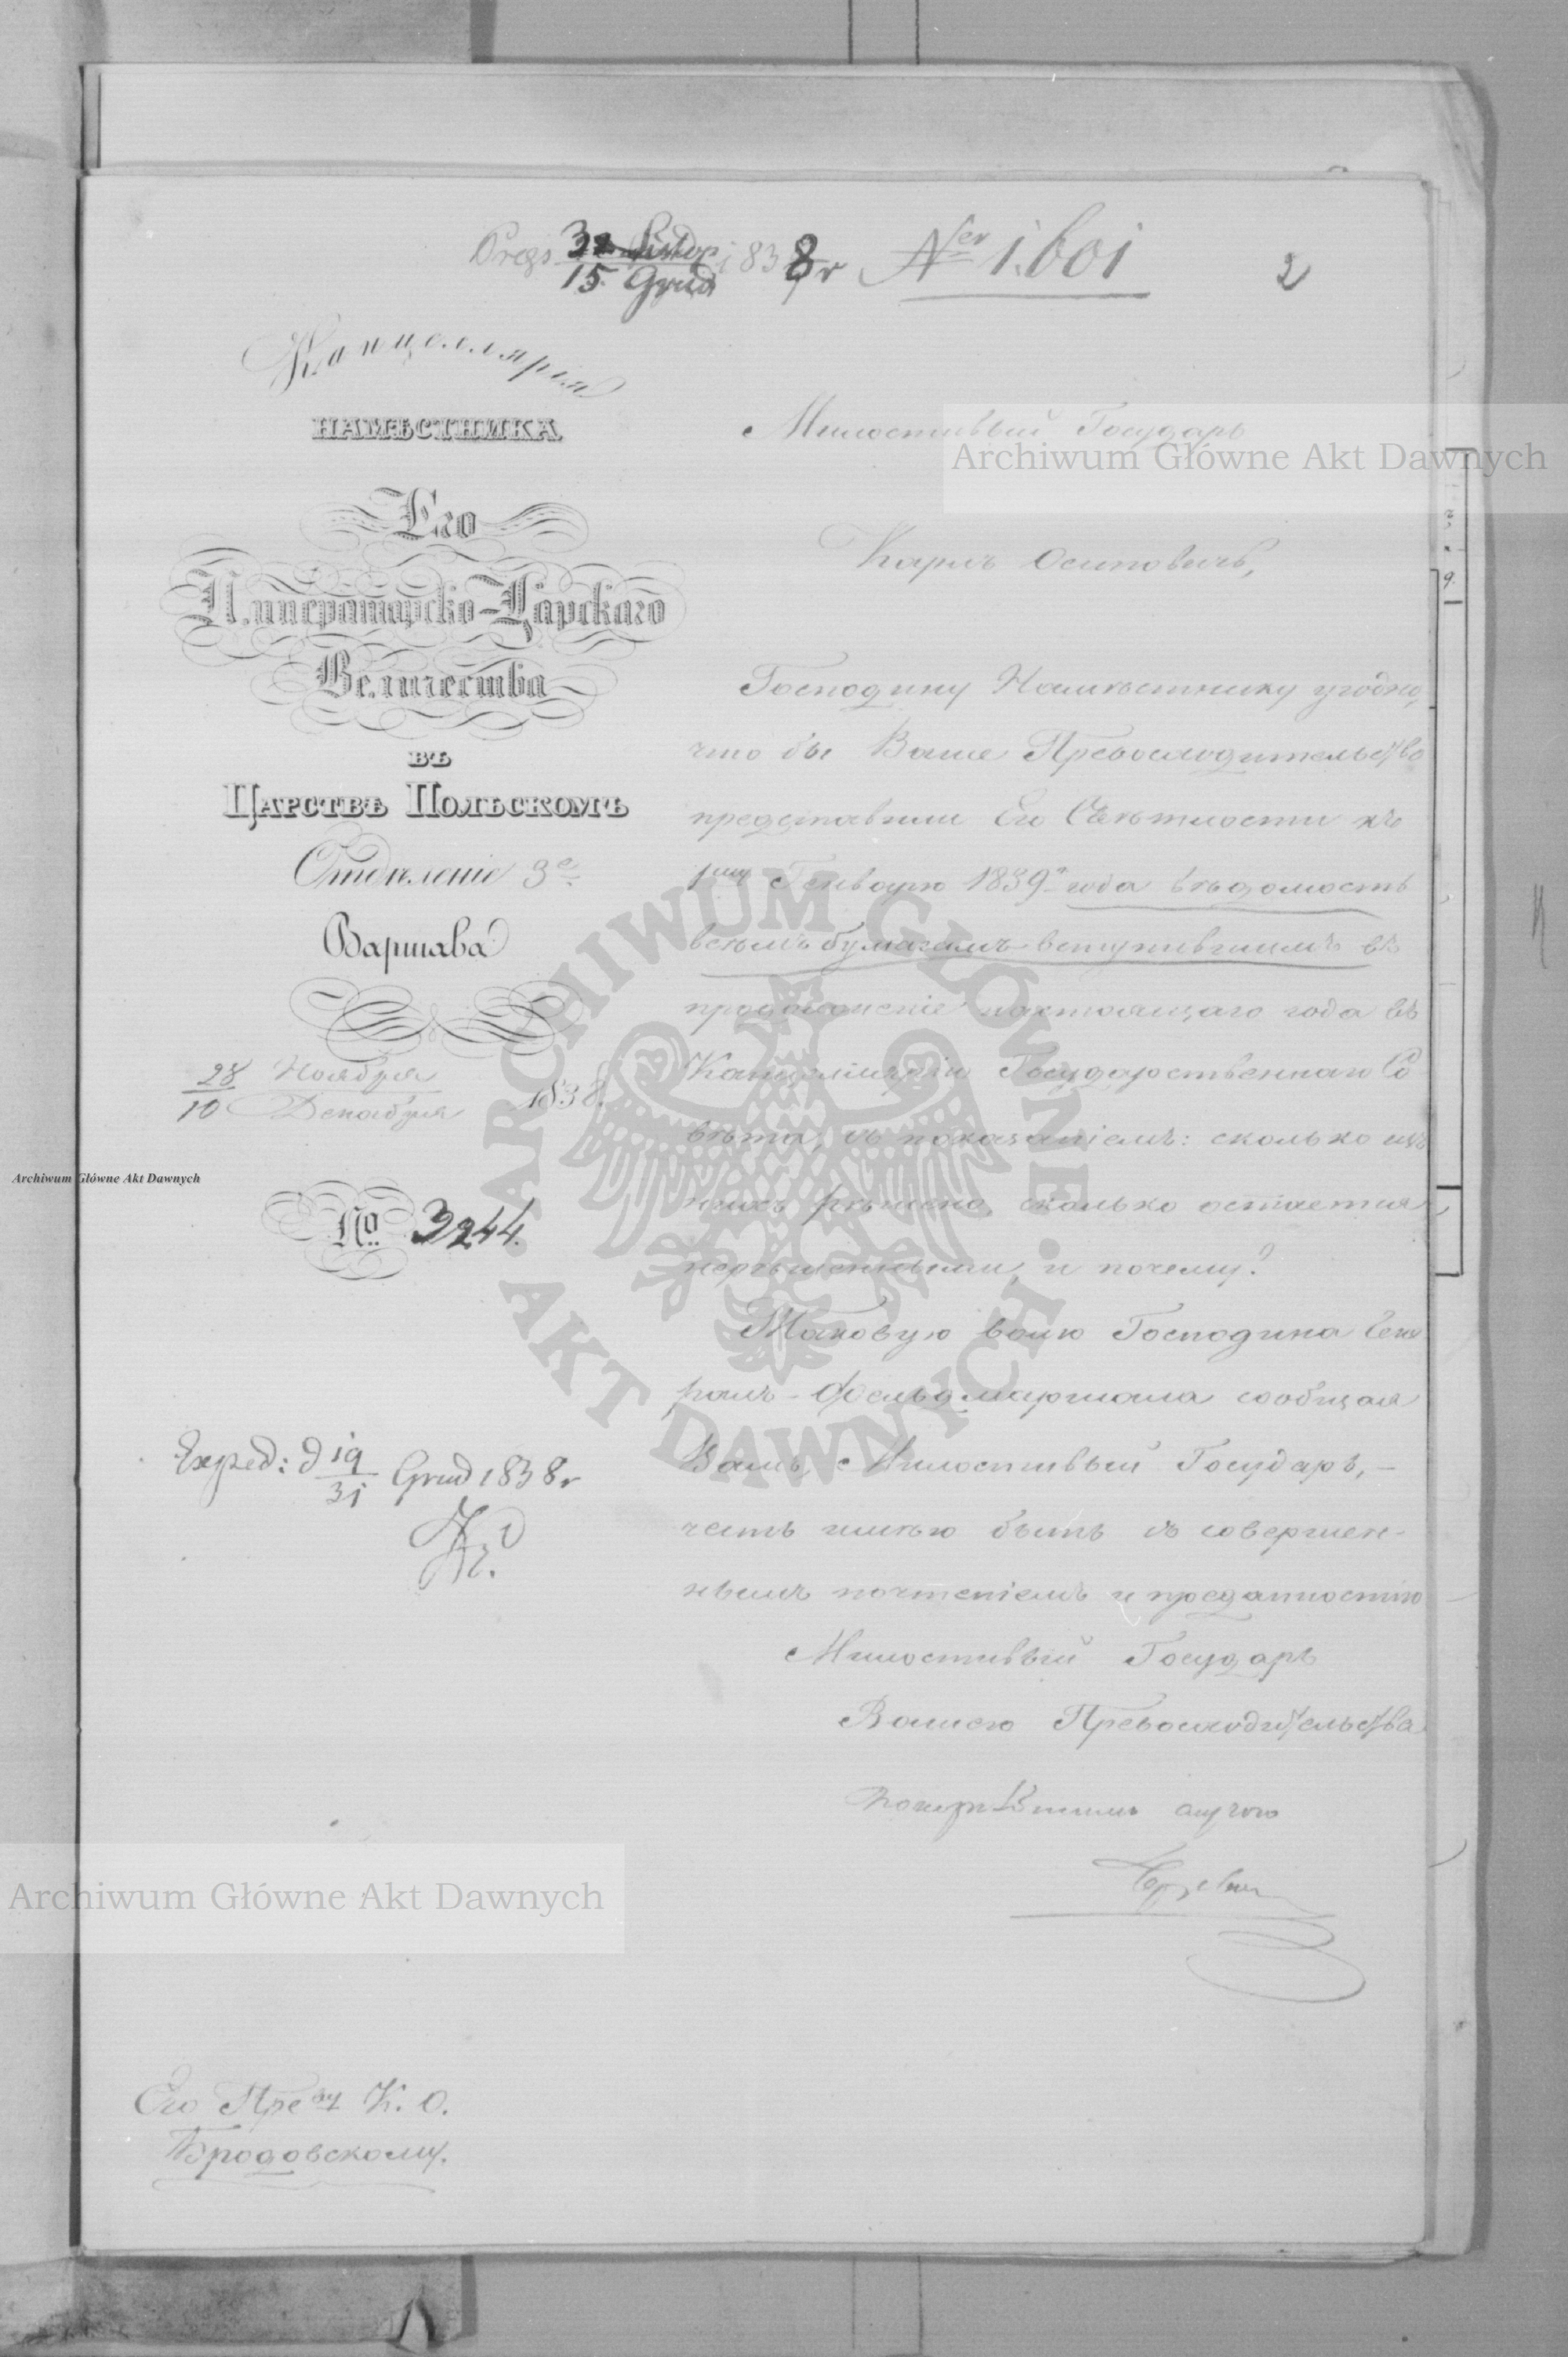 Prezs 15 Grud 1838 r Ner 1.601
2
Канцеллярія
НАМѢСТНИКА
Его
Императорско-Царскаго
Величества
ВЪ
ЦАРСТВѢ ПОЛЬСКОМЪ
Отдѣленіе 3е.
Варшава
28 Ноября
10 Декабря 1838.
№ 3244.
Exped: d 19/31 Grud 1838 r
Милостивый Государь
Карлъ Осиповичъ,
Господину Намѣстнику угодно,
что бы Ваше Превосходительство
представили Его Свѣтлости къ
1му Генварю 1839го года вѣдомость
всѣмъ бумагамъ вступившимъ въ
продолженіе настоящаго года въ
Канцелярію Государственнаго Со
вѣта, съ показаніемъ: сколько изъ
нихъ рѣшено, сколько остается
нерѣшенными, и почему?
Таковую волю Господина Гене
ралъ-Фельдмаршала сообщая
Вамъ, Милостивый Государь, –
честь имѣю быть съ совершен-
нымъ почтеніемъ и преданностію
Милостивый Государь
Вашего Превосходительства
Его Преву К. О.
Бродовскому.
Archiwum Główne Akt Dawnych
Archiwum Główne Akt Dawnych
Archiwum Główne Akt Dawnych
ARCHIWUM GŁÓWNE AKT DAWNYCH